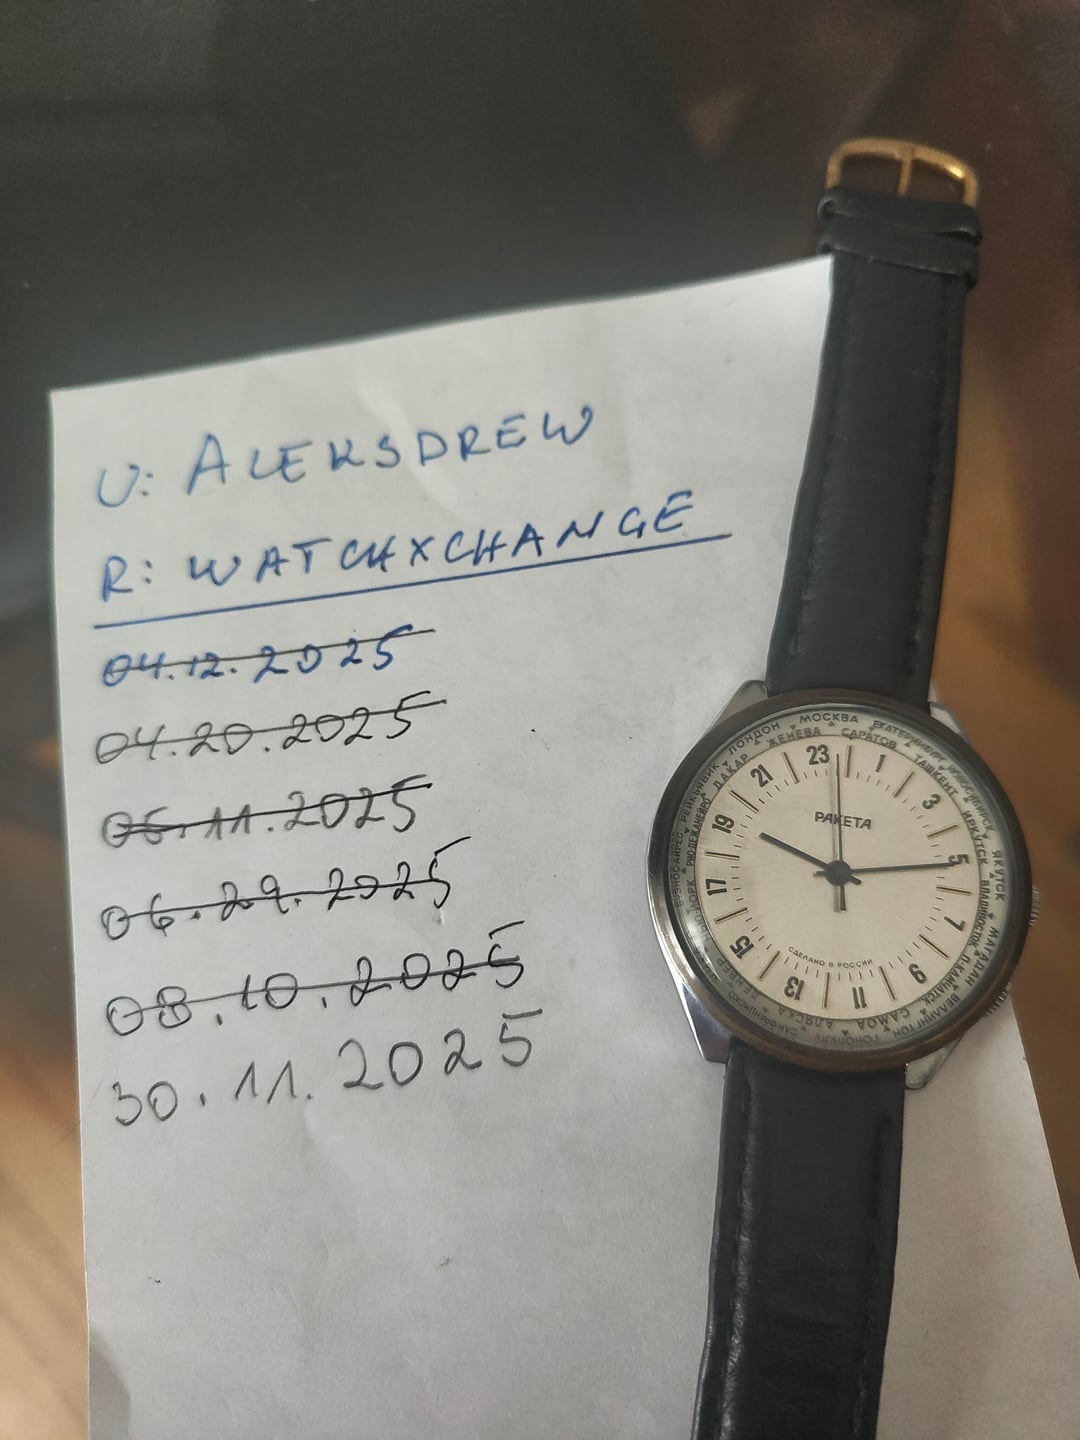 U: ALEKSDREW
R: WATCHXCHANGE
04.12.2025
04.20.2025
06.11.2025
06.29.2025
08.10.2025
30.11.2025
МОСКВА
ЕКАТЕРИНБУРГ
НОВОСИБИРСК
ЯКУТСК
МАГАДАН
ВЕЛЛИНГТОН
ГОНОЛУЛУ
САН-ФРАНЦИСКО
ДЕНВЕР
БУЭНОС-АЙРЕС
РЕЙКЬЯВИК
ЛОНДОН
САРАТОВ
ТАШКЕНТ
ИРКУТСК
ВЛАДИВОСТОК
П-КАМЧАТСК
САМОА
АЛЯСКА
РИО-ДЕ-ЖАНЕЙРО
ДАКАР
ЖЕНЕВА
23 1 3 5 7 9 11 13 15 17 19 21
РАКЕТА
СДЕЛАНО В РОССИИ